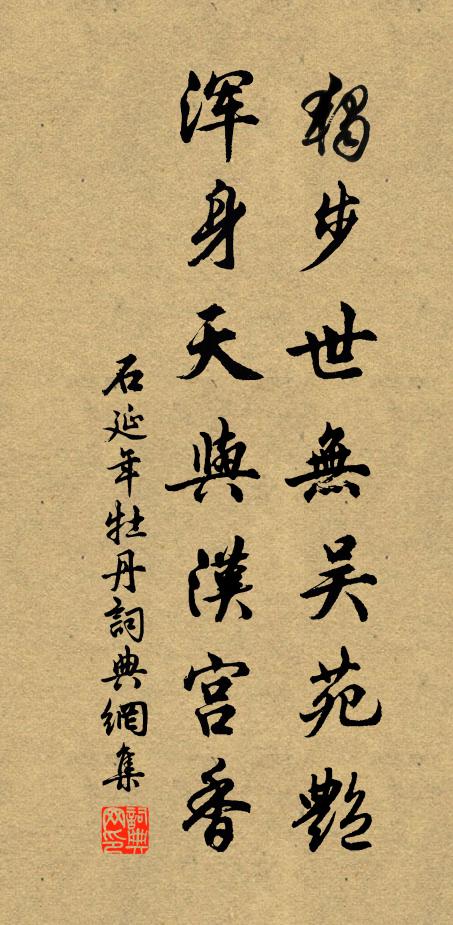 獨步世無吴苑艷
渾身天與漢宫香
石延年牡丹詞典網集
詞典网印